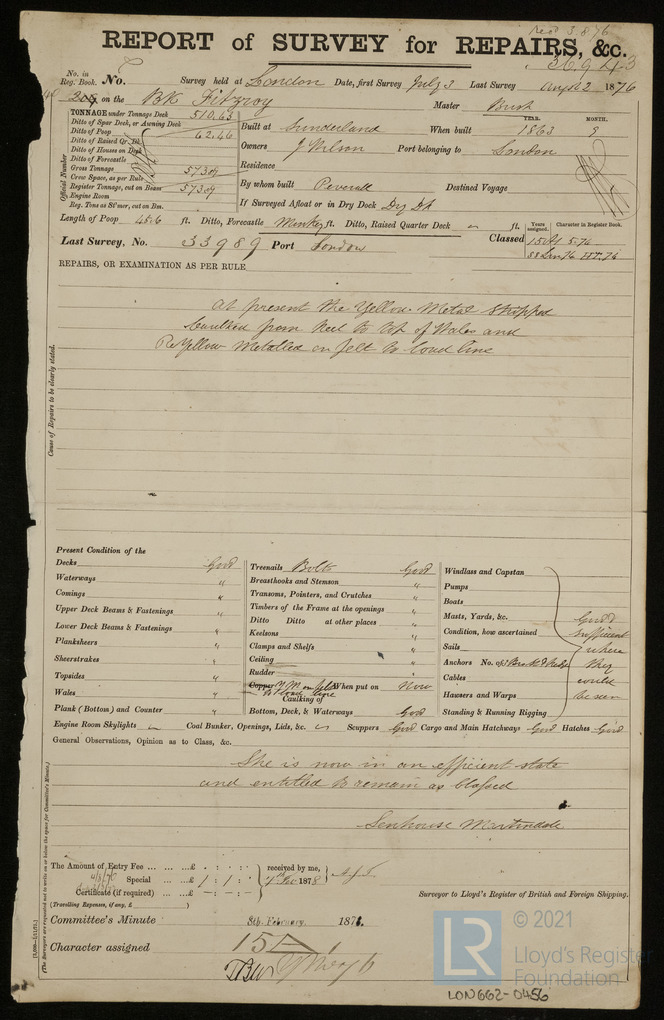 Recd 3 8 76
REPORT of SURVEY for REPAIRS, &c.
36943
No. in Reg. Book. No. Survey held at London Date, first Survey July 3 Last Survey Augst 2 1876
on the Bk Fitzroy Master Bush
TONNAGE under Tonnage Deck 510.63
Ditto of Spar Deck, or Awning Deck
Ditto of Poop 62.46
Ditto of Raised Qr. Dk.
Ditto of Houses on Deck
Ditto of Forecastle
Gross Tonnage 573.09
Crew Space, as per Rule
Register Tonnage, cut on Beam 573.09
Engine Room
Reg. Tons as St'mer, cut on Bm.
Official Number
Built at Sunderland When built YEAR. 1863 MONTH. 9
Owners J Wilson Port belonging to London
Residence
By whom built Peverall Destined Voyage
If Surveyed Afloat or in Dry Dock Dry Dk
Length of Poop 48.6 ft. Ditto, Forecastle Monkey ft. Ditto, Raised Quarter Deck ft.
Years assigned. Character in Register Book.
Last Survey, No. 33989 Port London Classed 15 A1 5.74
REPAIRS, OR EXAMINATION AS PER RULE
Cause of Repairs to be clearly stated.
At present the Yellow Metal Stripped
Caulked from Keel to top of Wales and
Re Yellow Metalled on felt to load line
Present Condition of the
Decks Good
Waterways "
Comings "
Upper Deck Beams & Fastenings "
Lower Deck Beams & Fastenings "
Planksheers "
Sheerstrakes "
Topsides "
Wales "
Plank (Bottom) and Counter "
Treenails Bolts Good
Breasthooks and Stemson "
Transoms, Pointers, and Crutches "
Timbers of the Frame at the openings "
Ditto Ditto at other places "
Keelsons "
Clamps and Shelfs "
Ceiling "
Rudder "
Copper Y.M. on felt When put on Now
to load line
Caulking of
Bottom, Deck, & Waterways Good
Windlass and Capstan
Pumps
Boats
Masts, Yards, &c. Good
Condition, how ascertained sufficient
Sails where
Anchors No. of they
Cables could
Hausers and Warps be seen
Standing & Running Rigging
Engine Room Skylights Coal Bunker, Openings, Lids, &c. Scuppers Good Cargo and Main Hatchways Good Hatches Good
General Observations, Opinion as to Class, &c.
She is now in an efficient state
and entitled to remain as Classed
Senhouse Martindale
The Amount of Entry Fee ... ... £ : : received by me,
Special ... ... £ 1 : 1 :
Certificate (if required) ... £ — : — : 1878
(Travelling Expenses, if any, £ )
Surveyor to Lloyd's Register of British and Foreign Shipping.
Committee's Minute 8th February 1878.
Character assigned 15 A 1
(The Surveyors are requested not to write on or below the space for Committee's Minute.)
LR © 2021
Lloyd's Register
Foundation
LON662-0456